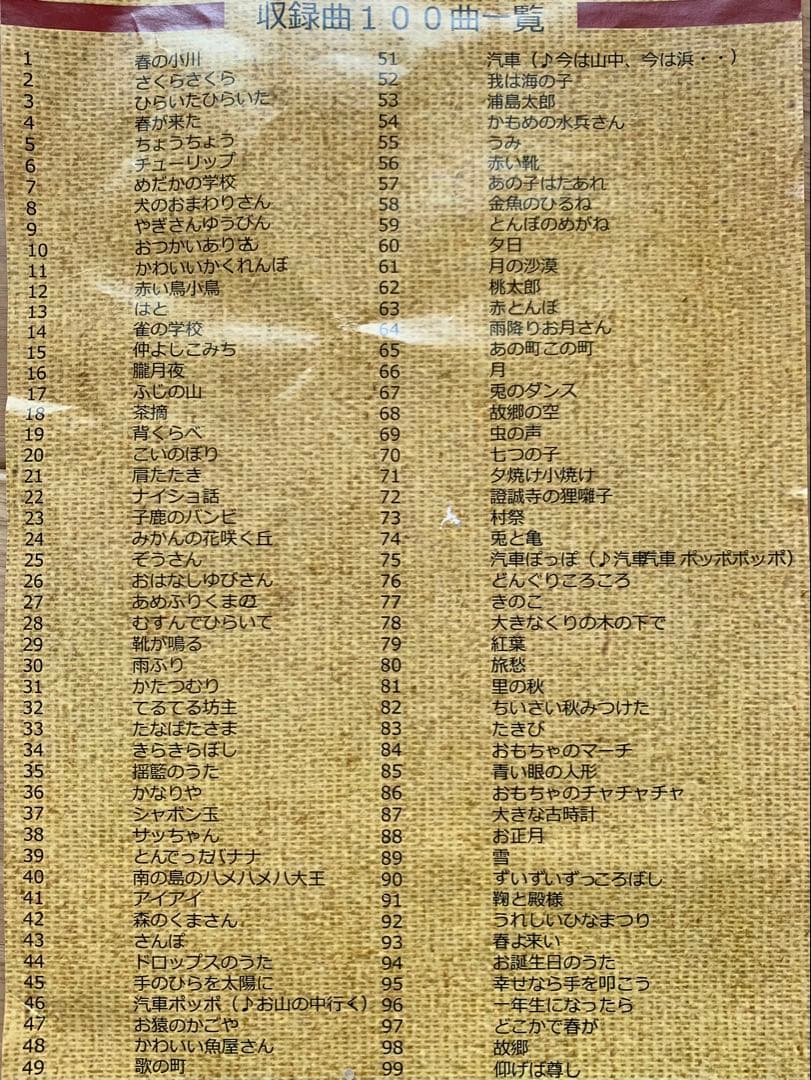 収録曲１００曲一覧
1 春の小川
2 さくらさくら
3 ひらいたひらいた
4 春が来た
5 ちょうちょう
6 チューリップ
7 めだかの学校
8 犬のおまわりさん
9 やぎさんゆうびん
10 おつかいありさん
11 かわいいかくれんぼ
12 赤い鳥小鳥
13 はと
14 雀の学校
15 仲よしこみち
16 朧月夜
17 ふじの山
18 茶摘
19 背くらべ
20 こいのぼり
21 肩たたき
22 ナイショ話
23 子鹿のバンビ
24 みかんの花咲く丘
25 ぞうさん
26 おはなしゆびさん
27 あめふりくまの
28 むすんでひらいて
29 靴が鳴る
30 雨ふり
31 かたつむり
32 てるてる坊主
33 たなばたさま
34 きらきらぼし
35 揺籃のうた
36 かなりや
37 シャボン玉
38 サッちゃん
39 とんでったバナナ
40 南の島のハメハメハ大王
41 アイアイ
42 森のくまさん
43 さんぽ
44 ドロップスのうた
45 手のひらを太陽に
46 汽車ポッポ（♪お山の中行く）
47 お猿のかごや
48 かわいい魚屋さん
49 歌の町
51 汽車（♪今は山中、今は浜・・）
52 我は海の子
53 浦島太郎
54 かもめの水兵さん
55 うみ
56 赤い靴
57 あの子はたあれ
58 金魚のひるね
59 とんぼのめがね
60 夕日
61 月の沙漠
62 桃太郎
63 赤とんぼ
64 雨降りお月さん
65 あの町この町
66 月
67 兎のダンス
68 故郷の空
69 虫の声
70 七つの子
71 夕焼け小焼け
72 證誠寺の狸囃子
73 村祭
74 兎と亀
75 汽車ぽっぽ（♪汽車汽車 ポッポポッポ）
76 どんぐりころころ
77 きのこ
78 大きなくりの木の下で
79 紅葉
80 旅愁
81 里の秋
82 ちいさい秋みつけた
83 たきび
84 おもちゃのマーチ
85 青い眼の人形
86 おもちゃのチャチャチャ
87 大きな古時計
88 お正月
89 雪
90 ずいずいずっころばし
91 鞠と殿様
92 うれしいひなまつり
93 春よ来い
94 お誕生日のうた
95 幸せなら手を叩こう
96 一年生になったら
97 どこかで春が
98 故郷
99 仰げば尊し